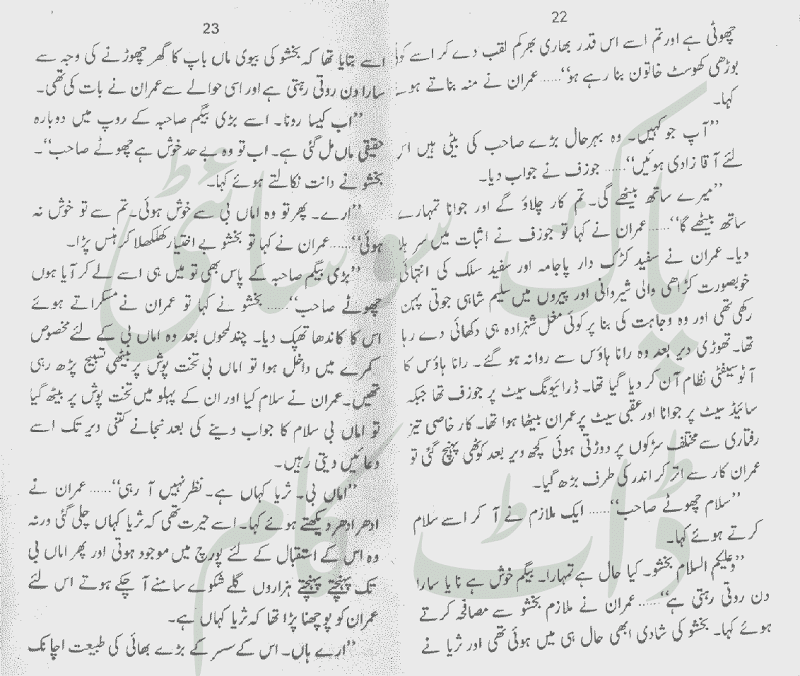 22
چھوٹی ہے اور تم اسے اس قدر بھاری بھرکم لقب دے کر اسے کوئی
بوڑھی کھوسٹ خاتون بنا رہے ہو‘‘...... عمران نے منہ بناتے ہوئے
کہا۔
’’آپ جو کہیں۔ وہ بہرحال بڑے صاحب کی بیٹی ہیں اس
لئے آقا زادی ہوئیں‘‘...... جوزف نے جواب دیا۔
’’میرے ساتھ بیٹھے گی۔ تم کار چلاؤ گے اور جوانا تمہارے
ساتھ بیٹھے گا‘‘...... عمران نے کہا تو جوزف نے اثبات میں سر ہلا
دیا۔ عمران نے سفید کڑک دار پاجامہ اور سفید سلک کی انتہائی
خوبصورت کڑاھی والی شیروانی اور پیروں میں سلیم شاہی جوتی پہن
رکھی تھی اور وہ وجاہت کی بنا پر کوئی مغل شہزادہ ہی دکھائی دے رہا
تھا۔ تھوڑی دیر بعد وہ رانا ہاؤس سے روانہ ہو گئے۔ رانا ہاؤس کا
آٹو سیفٹی نظام آن کر دیا گیا تھا۔ ڈرائیونگ سیٹ پر جوزف تھا جبکہ
سائیڈ سیٹ پر جوانا اور عقبی سیٹ پر عمران بیٹھا ہوا تھا۔ کار خاصی تیز
رفتاری سے مختلف سڑکوں پر دوڑتی ہوئی کچھ دیر بعد کوٹھی پہنچ گئی تو
عمران کار سے اتر کر اندر کی طرف بڑھ گیا۔
’’سلام چھوٹے صاحب‘‘...... ایک ملازم نے آ کر اسے سلام
کرتے ہوئے کہا۔
’’وعلیکم السلام بخشو۔ کیا حال ہے تمہارا۔ بیگم خوش ہے نا یا سارا
دن روتی رہتی ہے‘‘...... عمران نے ملازم بخشو سے مصافحہ کرتے
ہوئے کہا۔ بخشو کی شادی ابھی حال ہی میں ہوئی تھی اور ثریا نے
23
اسے بتایا تھا کہ بخشو کی بیوی ماں باپ کا گھر چھوڑنے کی وجہ سے
سارا دن روتی رہتی ہے اور اسی حوالے سے عمران نے بات کی تھی۔
’’اب کیسا رونا۔ اسے بڑی بیگم صاحبہ کے روپ میں دوبارہ
حقیقی ماں مل گئی ہے۔ اب تو وہ بے حد خوش ہے چھوٹے صاحب‘‘۔
بخشو نے دانت نکالتے ہوئے کہا۔
’’ارے۔ پھر تو وہ اماں بی سے خوش ہوئی۔ تم سے تو خوش نہ
ہوئی‘‘...... عمران نے کہا تو بخشو بے اختیار کھلکھلا کر ہنس پڑا۔
’’بڑی بیگم صاحبہ کے پاس بھی تو میں ہی اسے لے کر آیا ہوں
چھوٹے صاحب‘‘...... بخشو نے کہا تو عمران نے مسکراتے ہوئے
اس کا کاندھا تھپک دیا۔ چند لمحوں بعد وہ اماں بی کے لئے مخصوص
کمرے میں داخل ہوا تو اماں بی تخت پوش پر بیٹھی تسبیح پڑھ رہی
تھیں۔ عمران نے سلام کیا اور ان کے پہلو میں تخت پوش پر بیٹھ گیا
تو اماں بی سلام کا جواب دینے کی بعد نجانے کتنی دیر تک اسے
دعائیں دیتی رہیں۔
’’اماں بی۔ ثریا کہاں ہے۔ نظر نہیں آ رہی‘‘...... عمران نے
ادھر ادھر دیکھتے ہوئے کہا۔ اسے حیرت تھی کہ ثریا کہاں چلی گئی ورنہ
وہ اس کے استقبال کے لئے پورچ میں موجود ہوتی اور پھر اماں بی
تک پہنچتے پہنچتے ہزاروں گلے شکوے سامنے آ چکے ہوتے اس لئے
عمران کو پوچھنا پڑا تھا کہ ثریا کہاں ہے۔
’’ارے ہاں۔ اس کے سسر کے بڑے بھائی کی طبیعت اچانک
پاک سوسائٹی
ڈاٹ کام